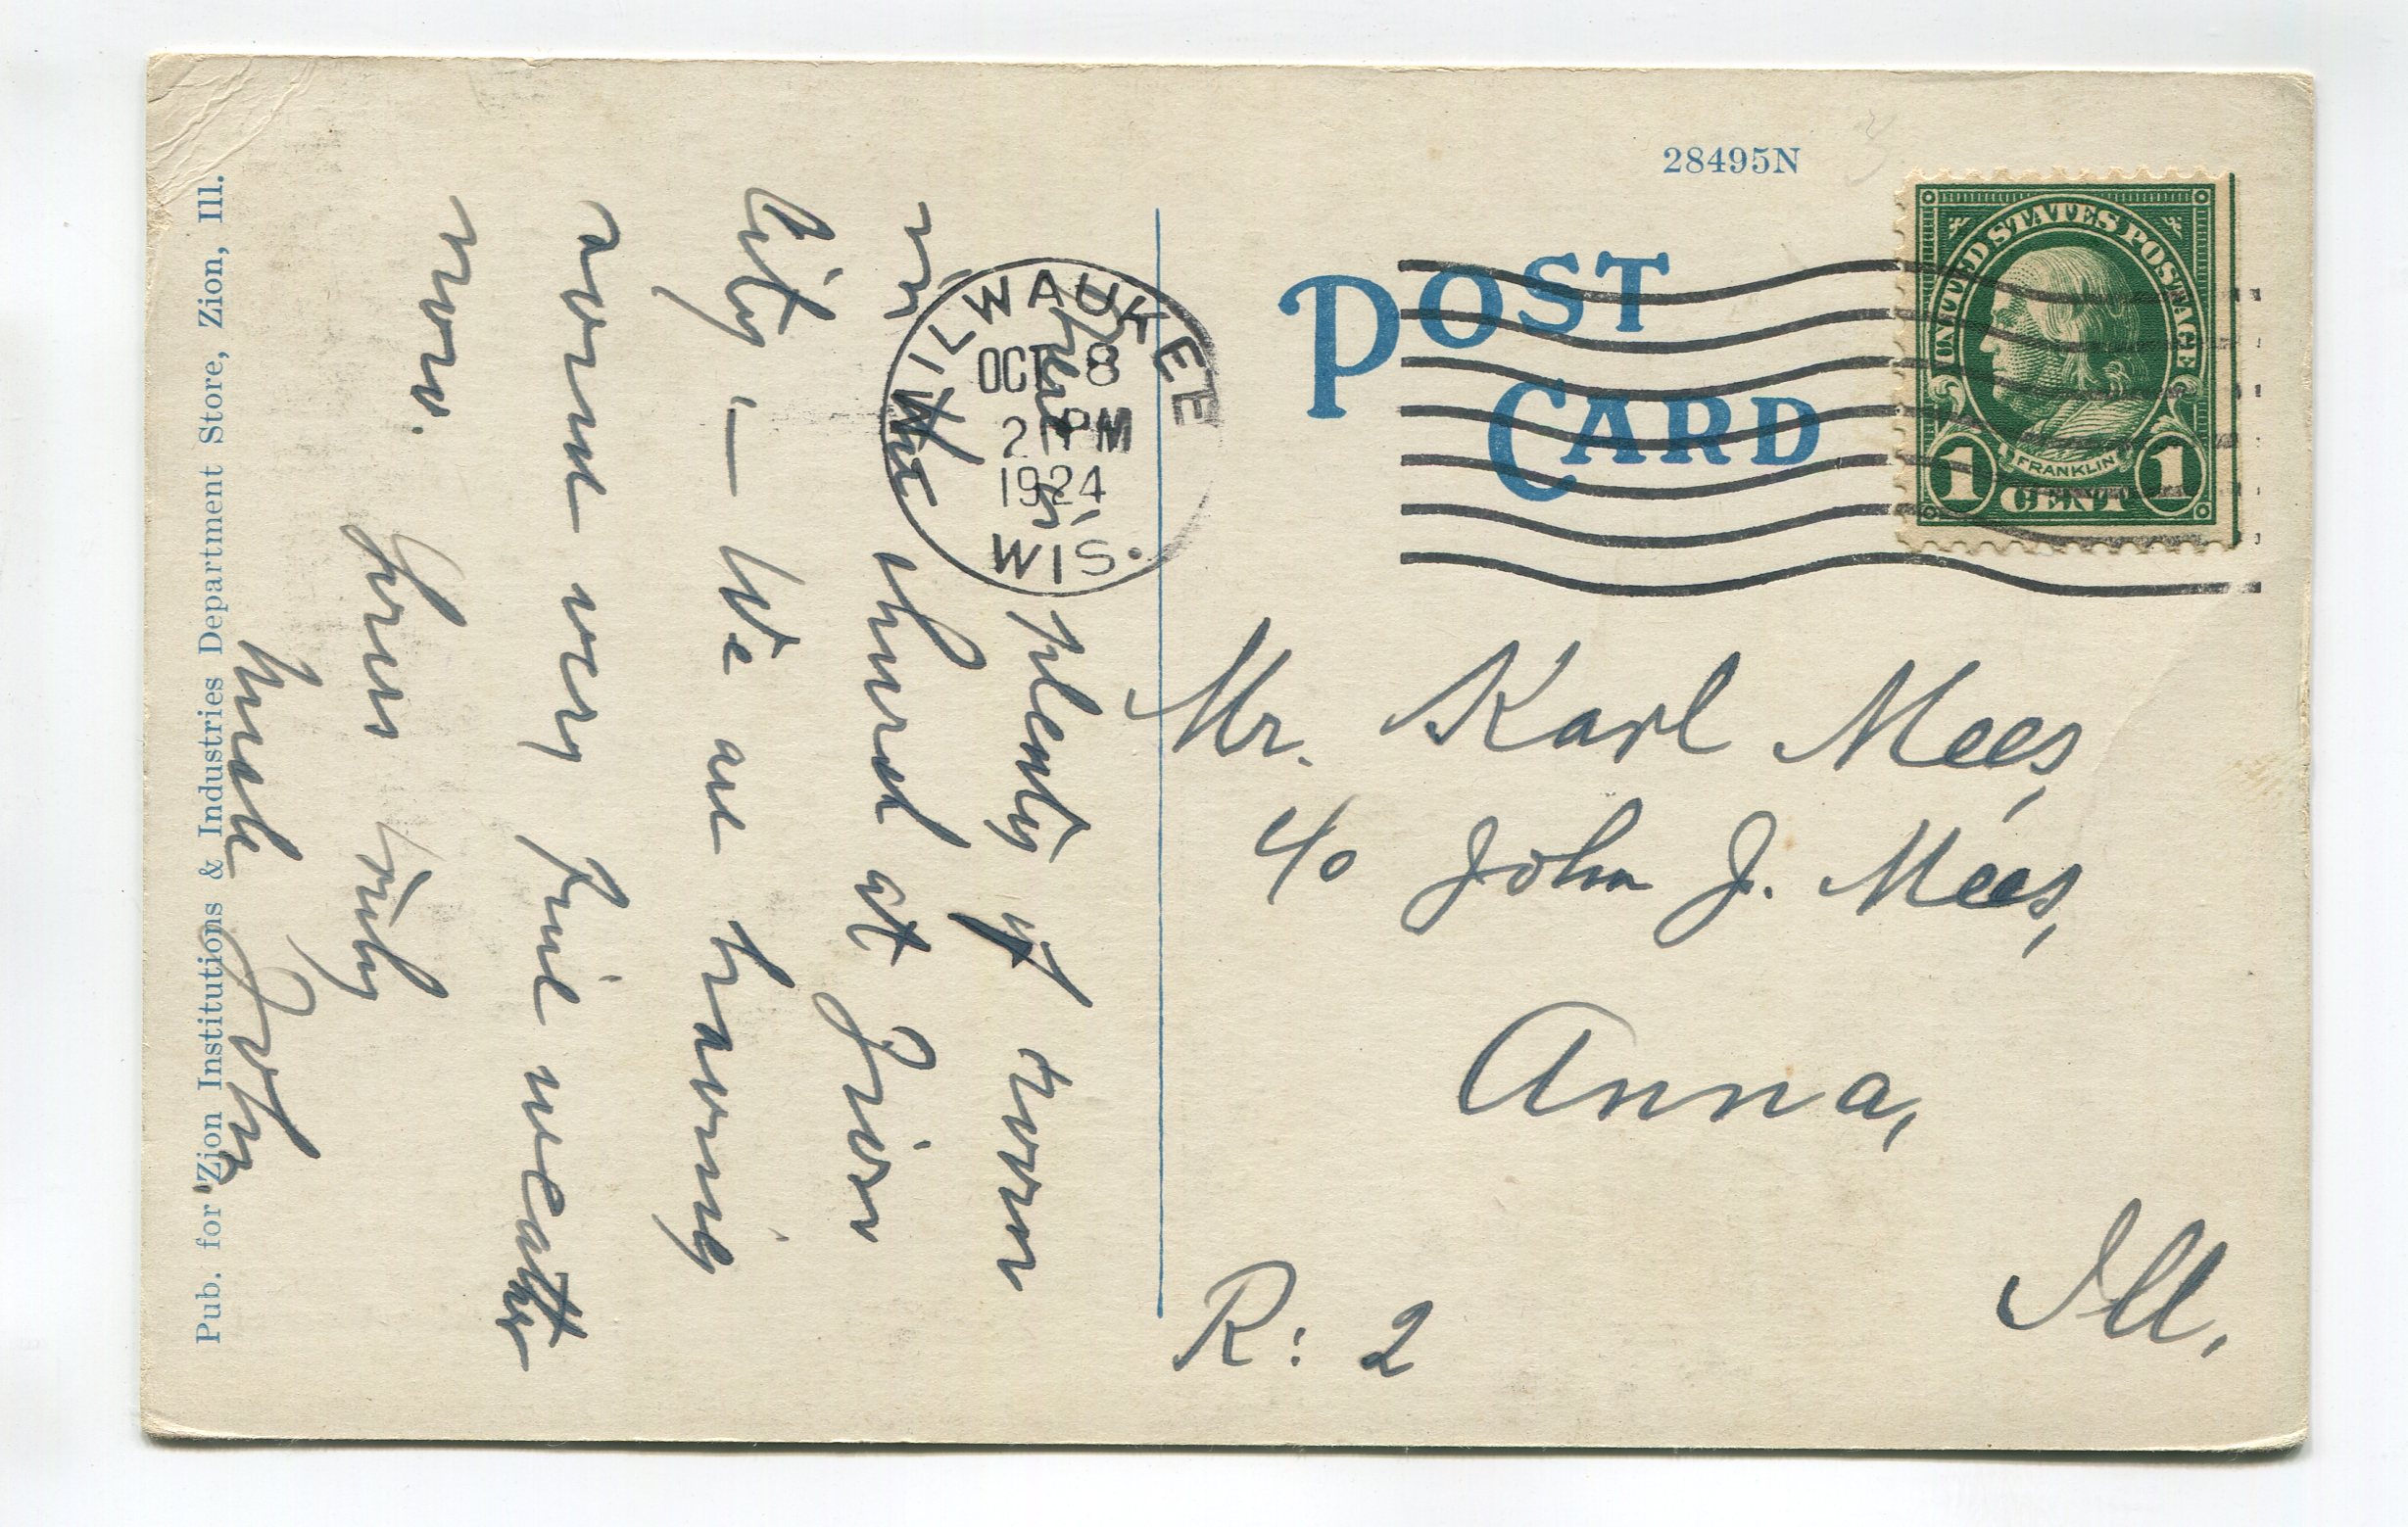 28495N
POST
CARD
UNITED STATES POSTAGE
FRANKLIN
1 CENT 1
MILWAUKEE
OCT 8
2 PM
1924
WIS.
Mr. Karl Mees,
c/o John J. Mees,
Anna,
Ill.
R: 2
There is plenty of room
in the church at Zion
City — We are having
some very fine weather
now.
Yours truly
Uncle John
Pub. for Zion Institutions & Industries Department Store, Zion, Ill.